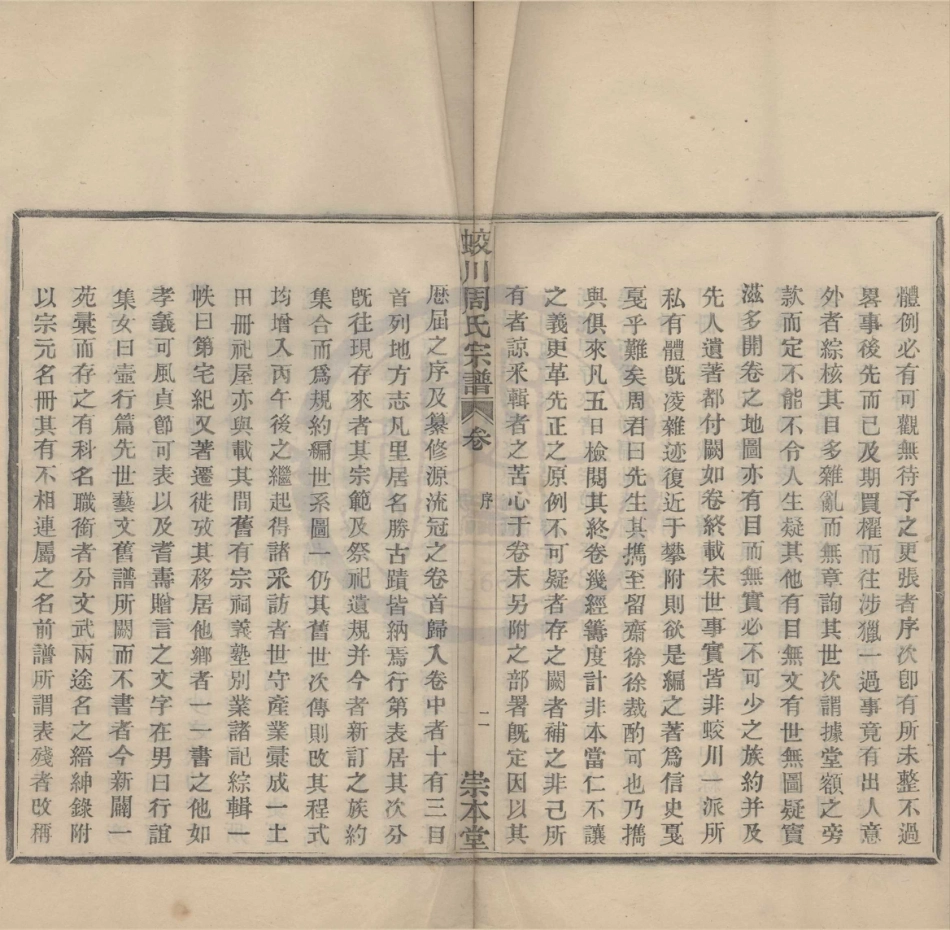 體例必有可觀無待予之更張者序次卽有所未整不過
畧事後先而已及期買櫂而往涉獵一過事竟有出人意
外者綜核其目多雜亂而無章詢其世次謂據堂額之旁
款而定不能不令人生疑其他有目無文有世無圖疑竇
滋多開卷之地圖亦有目而無實必不可少之族約并及
先人遺著都付闕如卷終載宋世事實皆非蛟川一派所
私有體旣凌雜迹復近于攀附則欲是編之著爲信史戛
戛乎難矣周君曰先生其攜至留齋徐徐裁酌可也乃攜
與俱來凡五日檢閱其終卷幾經籌度計非本當仁不讓
之義更革先正之原例不可疑者存之闕者補之非己所
有者諒釆輯者之苦心于卷末另附之部署旣定因以其
蛟川周氏宗譜 卷 序 二 崇本堂
厯屆之序及纂修源流冠之卷首歸入卷中者十有三目
首列地方志凡里居名勝古蹟皆納焉行第表居其次分
旣往現存來者其宗範及祭祀遺規并今者新訂之族約
集合而爲規約編世系圖一仍其舊世次傳則改其程式
均增入丙午後之繼起得諸采訪者世守產業彙成一土
田冊祀屋亦與載其間舊有宗祠義塾別業諸記綜輯一
帙曰第宅紀又著遷徙攷其移居他鄉者一一書之他如
孝義可風貞節可表以及耆壽贈言之文字在男曰行誼
集女曰壼行篇先世藝文舊譜所闕而不書者今新闢一
苑彙而存之有科名職銜者分文武兩途名之縉紳錄附
以宗元名冊其有不相連屬之名前譜所謂表殘者改稱